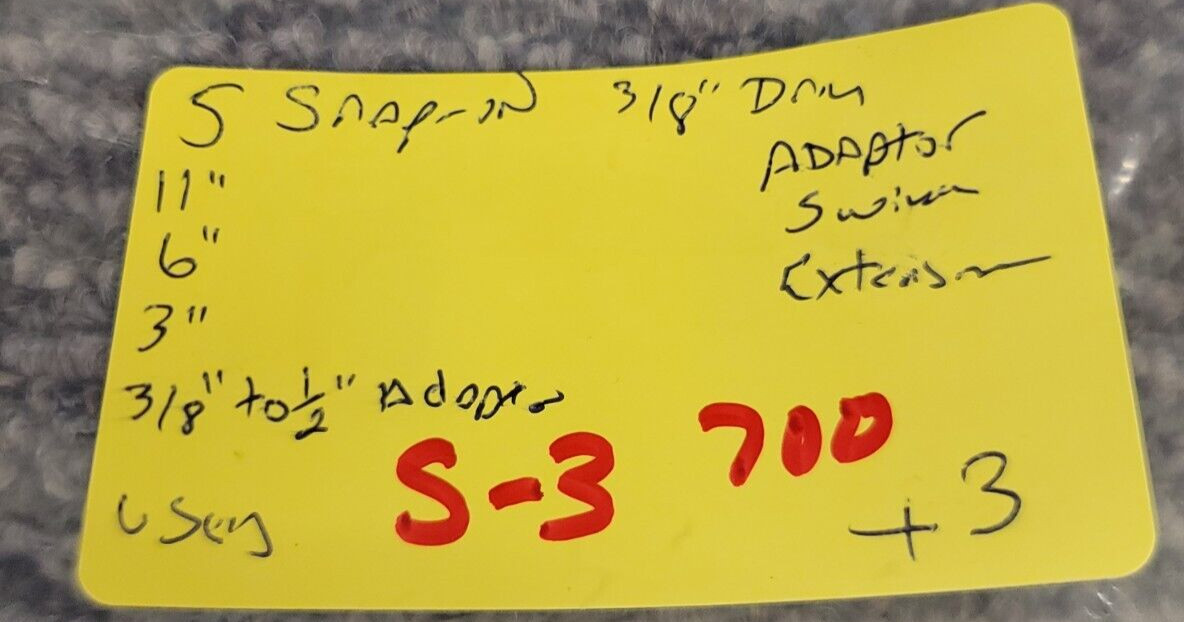 5 Snap-on 3/8" Driv
ADAptor
Swivel
Extension
11"
6"
3"
3/8" to 1/2" Adapter
Used
S-3 700
+3